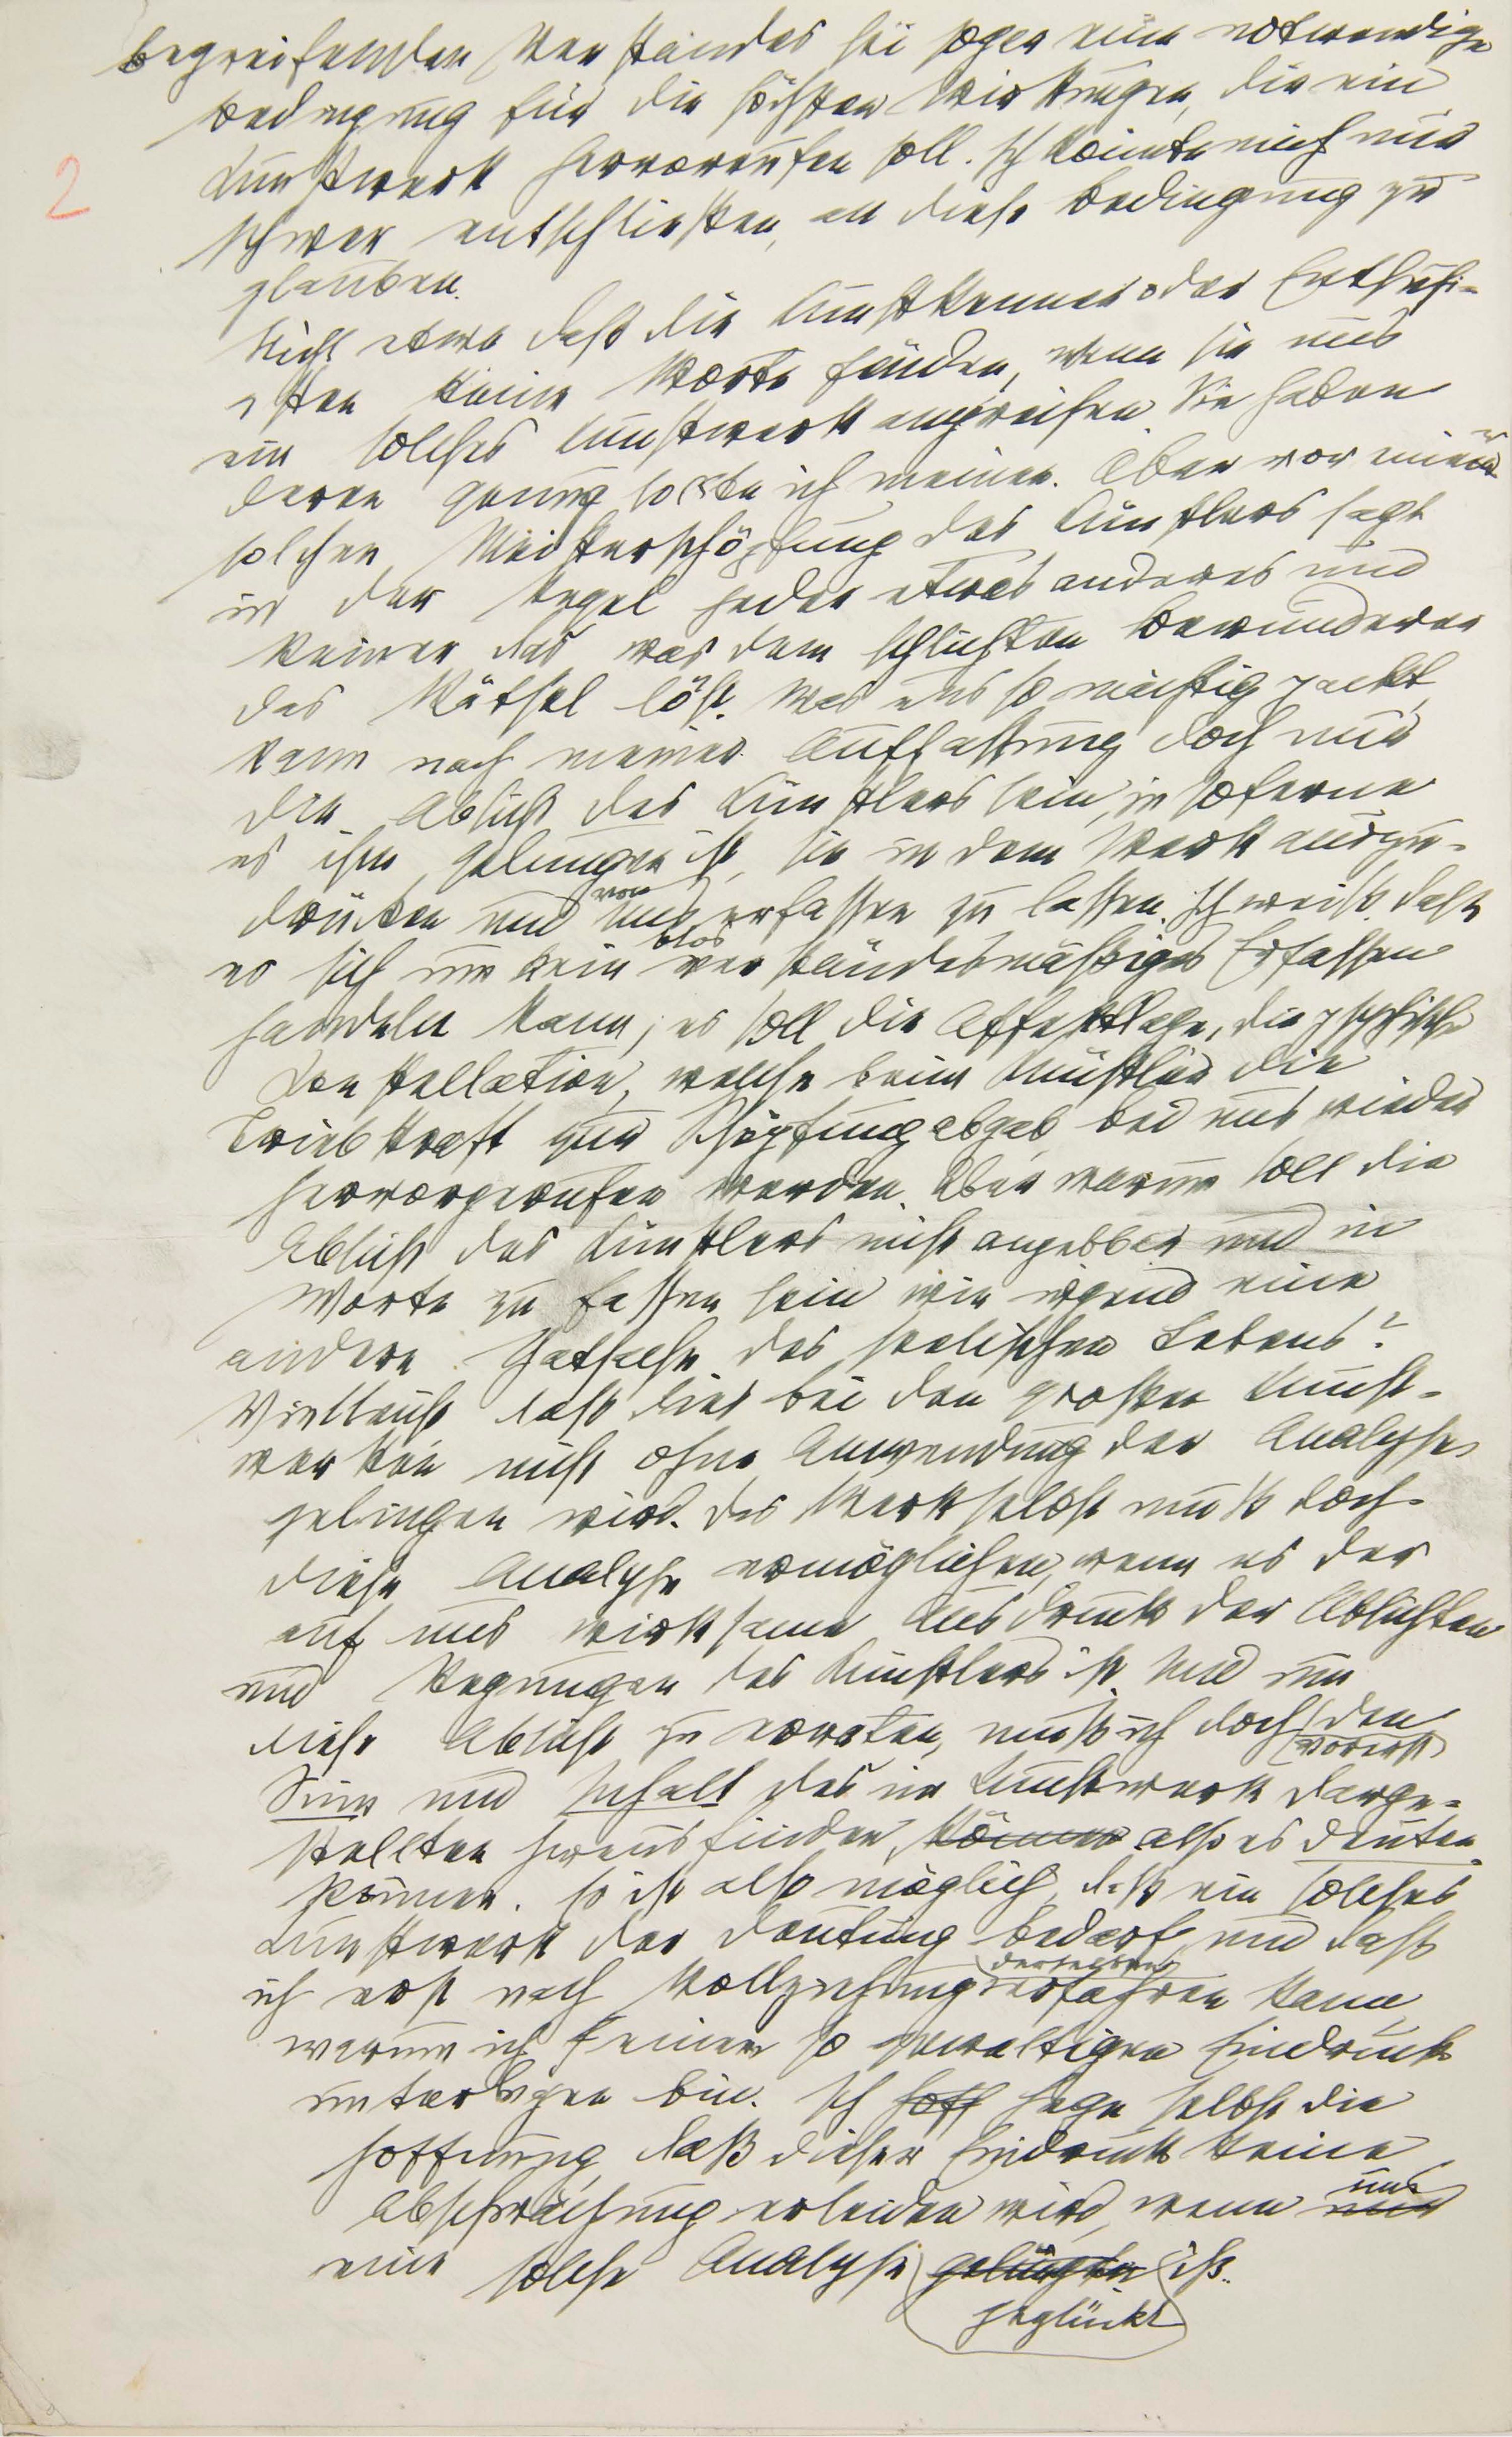 2
begreifenden Verstandes sei sogar eine notwendige
Bedingung für die höchsten Wirkungen, die ein
Kunstwerk hervorrufen soll. Ich könnte mich nur
schwer entschließen, an diese Bedingung zu
glauben.
Nicht etwa daß die Kunstkenner oder Enthusi-
asten keine Worte fänden, wenn sie uns
ein solches Kunstwerk anpreisen. Sie haben
deren genug, sollte ich meinen. Aber vor einer
solchen Meisterschöpfung des Künstlers sagt
in der Regel jeder etwas anderes und
keiner das, was dem schlichten Bewunderer
das Rätsel löst. Was uns so mächtig packt,
kann nach meiner Auffassung doch nur
die Absicht des Künstlers sein, insoferne
es ihm gelungen ist, sie in dem Werk auszu-
drücken und von uns erfassen zu lassen. Ich weiß, daß
es sich um kein blos verständesmäßiges Erfassen
handeln kann; es soll die Affektlage, die psychische
Konstellation, welche beim Künstler die
Triebkraft zur Schöpfung abgab, bei uns wieder
hervorgerufen werden. Aber warum soll die
Absicht des Künstlers nicht angebbar und in
Worte zu fassen sein wie irgend eine
andere Thatsache des seelischen Lebens?
Vielleicht daß dies bei den großen Kunst-
werken nicht ohne Anwendung der Analyse
gelingen wird. Das Werk selbst muß doch
diese Analyse ermöglichen, wenn es der
auf uns wirksame Ausdruck der Absichten
und Regungen des Künstlers ist. Und um
diese Absicht zu erraten, muß ich doch vorerst den
Sinn und Inhalt des im Kunstwerk Darge-
stellten herausfinden, können also es deuten
können. Es ist also möglich, daß ein solches
Kunstwerk der Deutung bedarf, und daß
ich erst nach Vollziehung derselben erfahren kann,
warum ich einem so gewaltigen Eindruck
unterlegen bin. Ich hoff hege selbst die
Hoffnung, daß dieser Eindruck keine
Abschwächung erleiden wird, wenn uns
eine solche Analyse gelungen ist.
geglückt